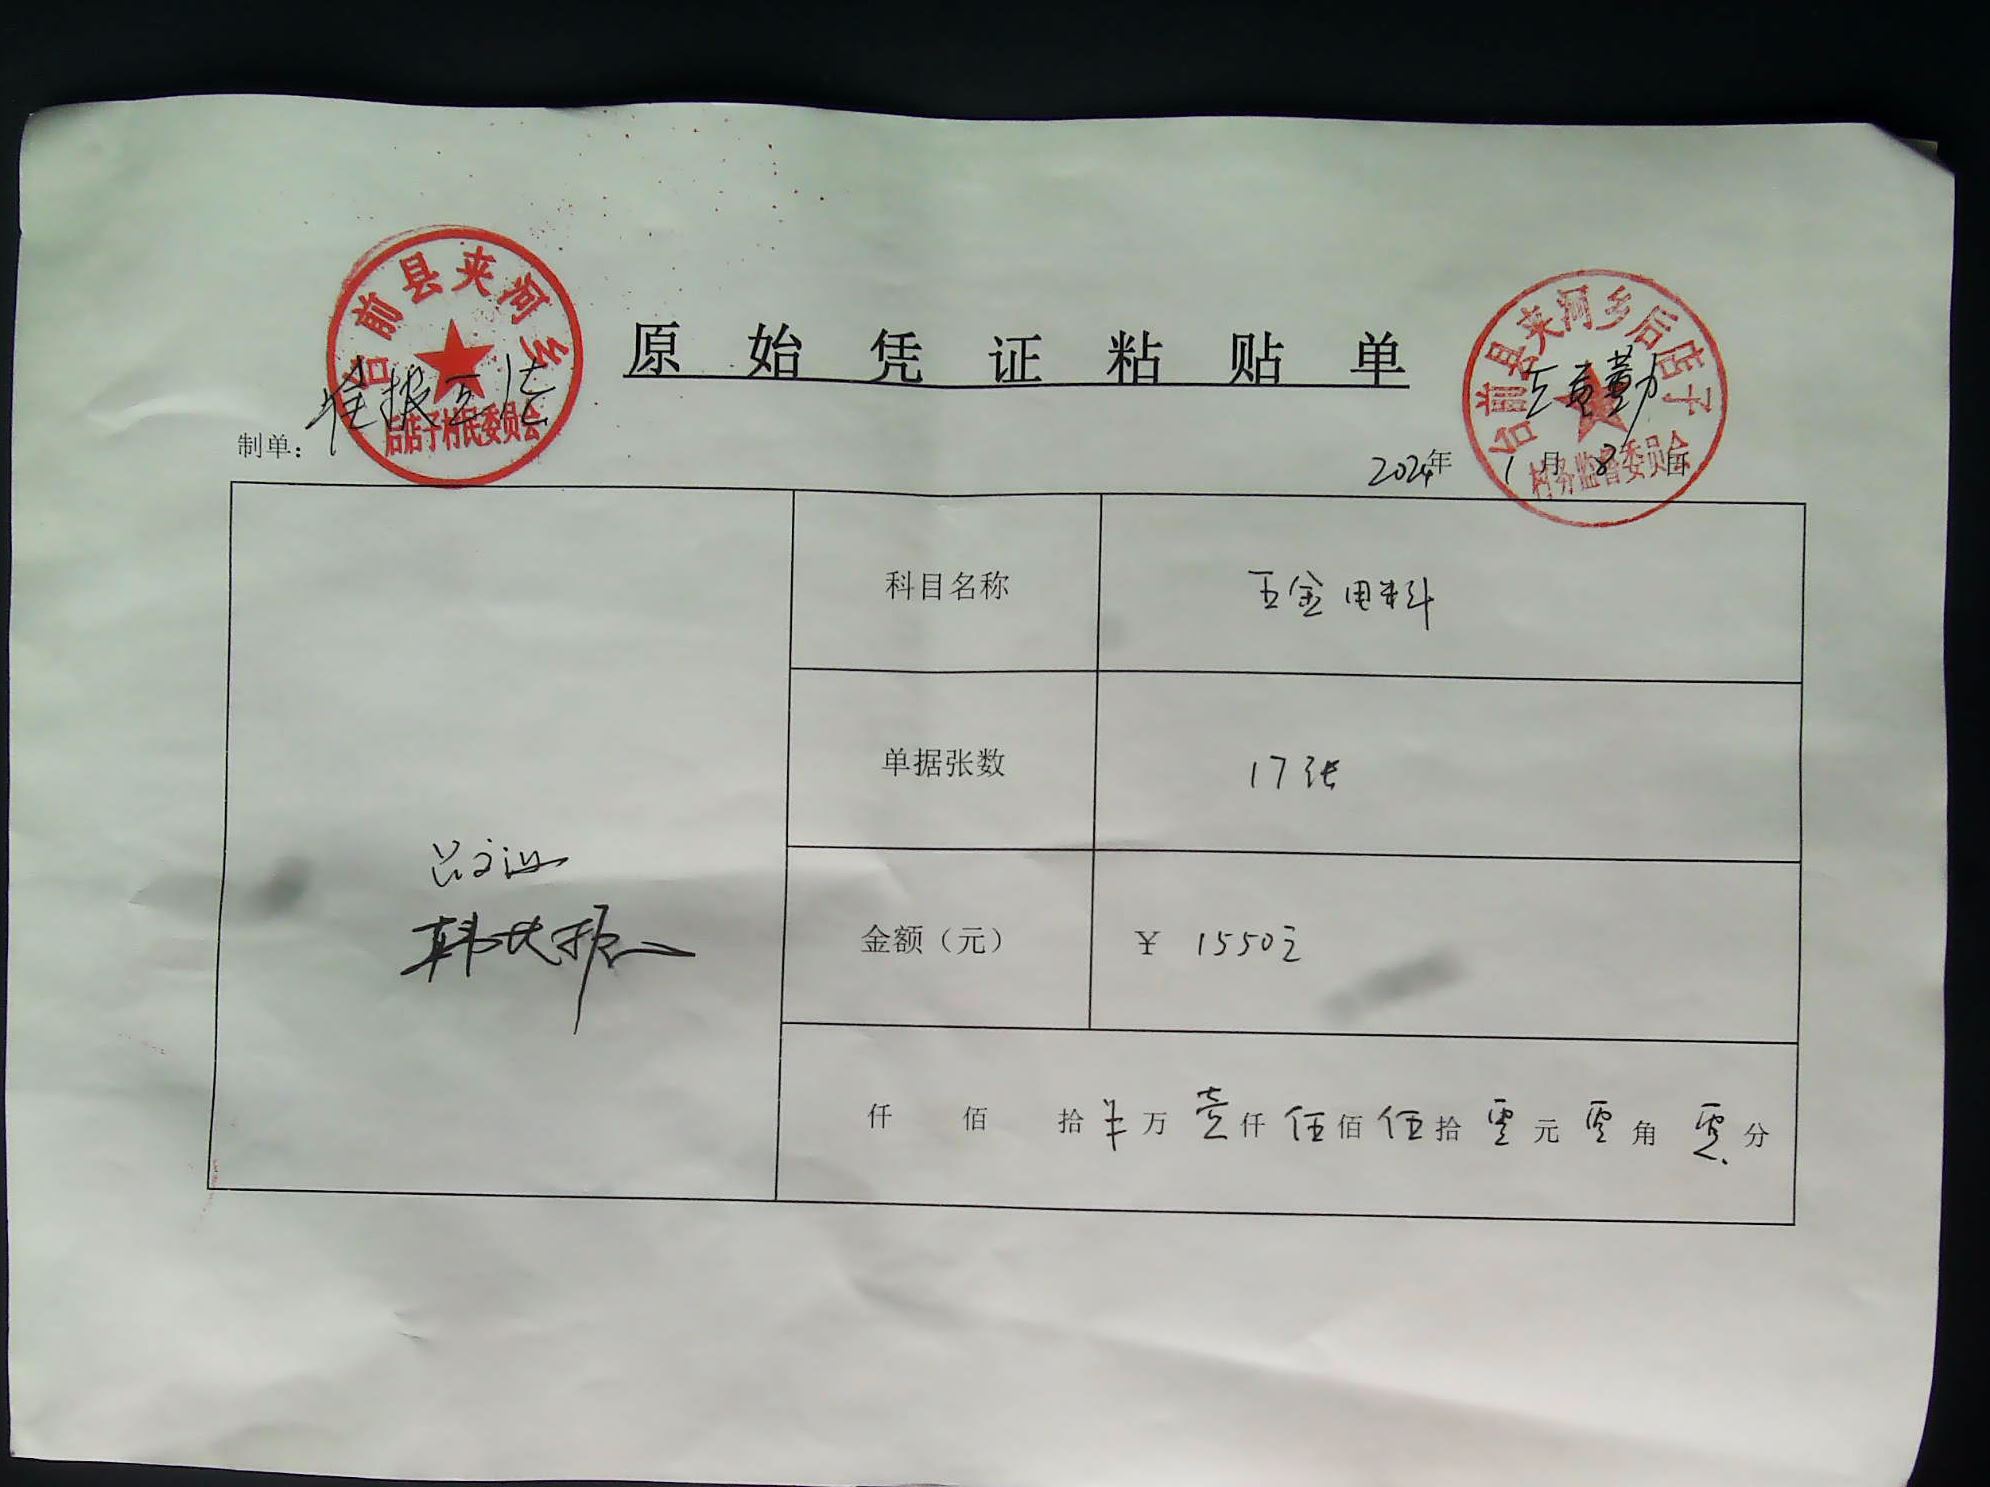 台前县夹河乡
后店子村民委员会
原始凭证粘贴单
台前县夹河乡后店子
村务监督委员会
制单：
2024年 1月 8日
科目名称 五金用料
单据张数 17张
金额（元） ¥ 1550元
仟 佰 拾 万 壹仟 伍佰 伍拾 零元 零角 零分